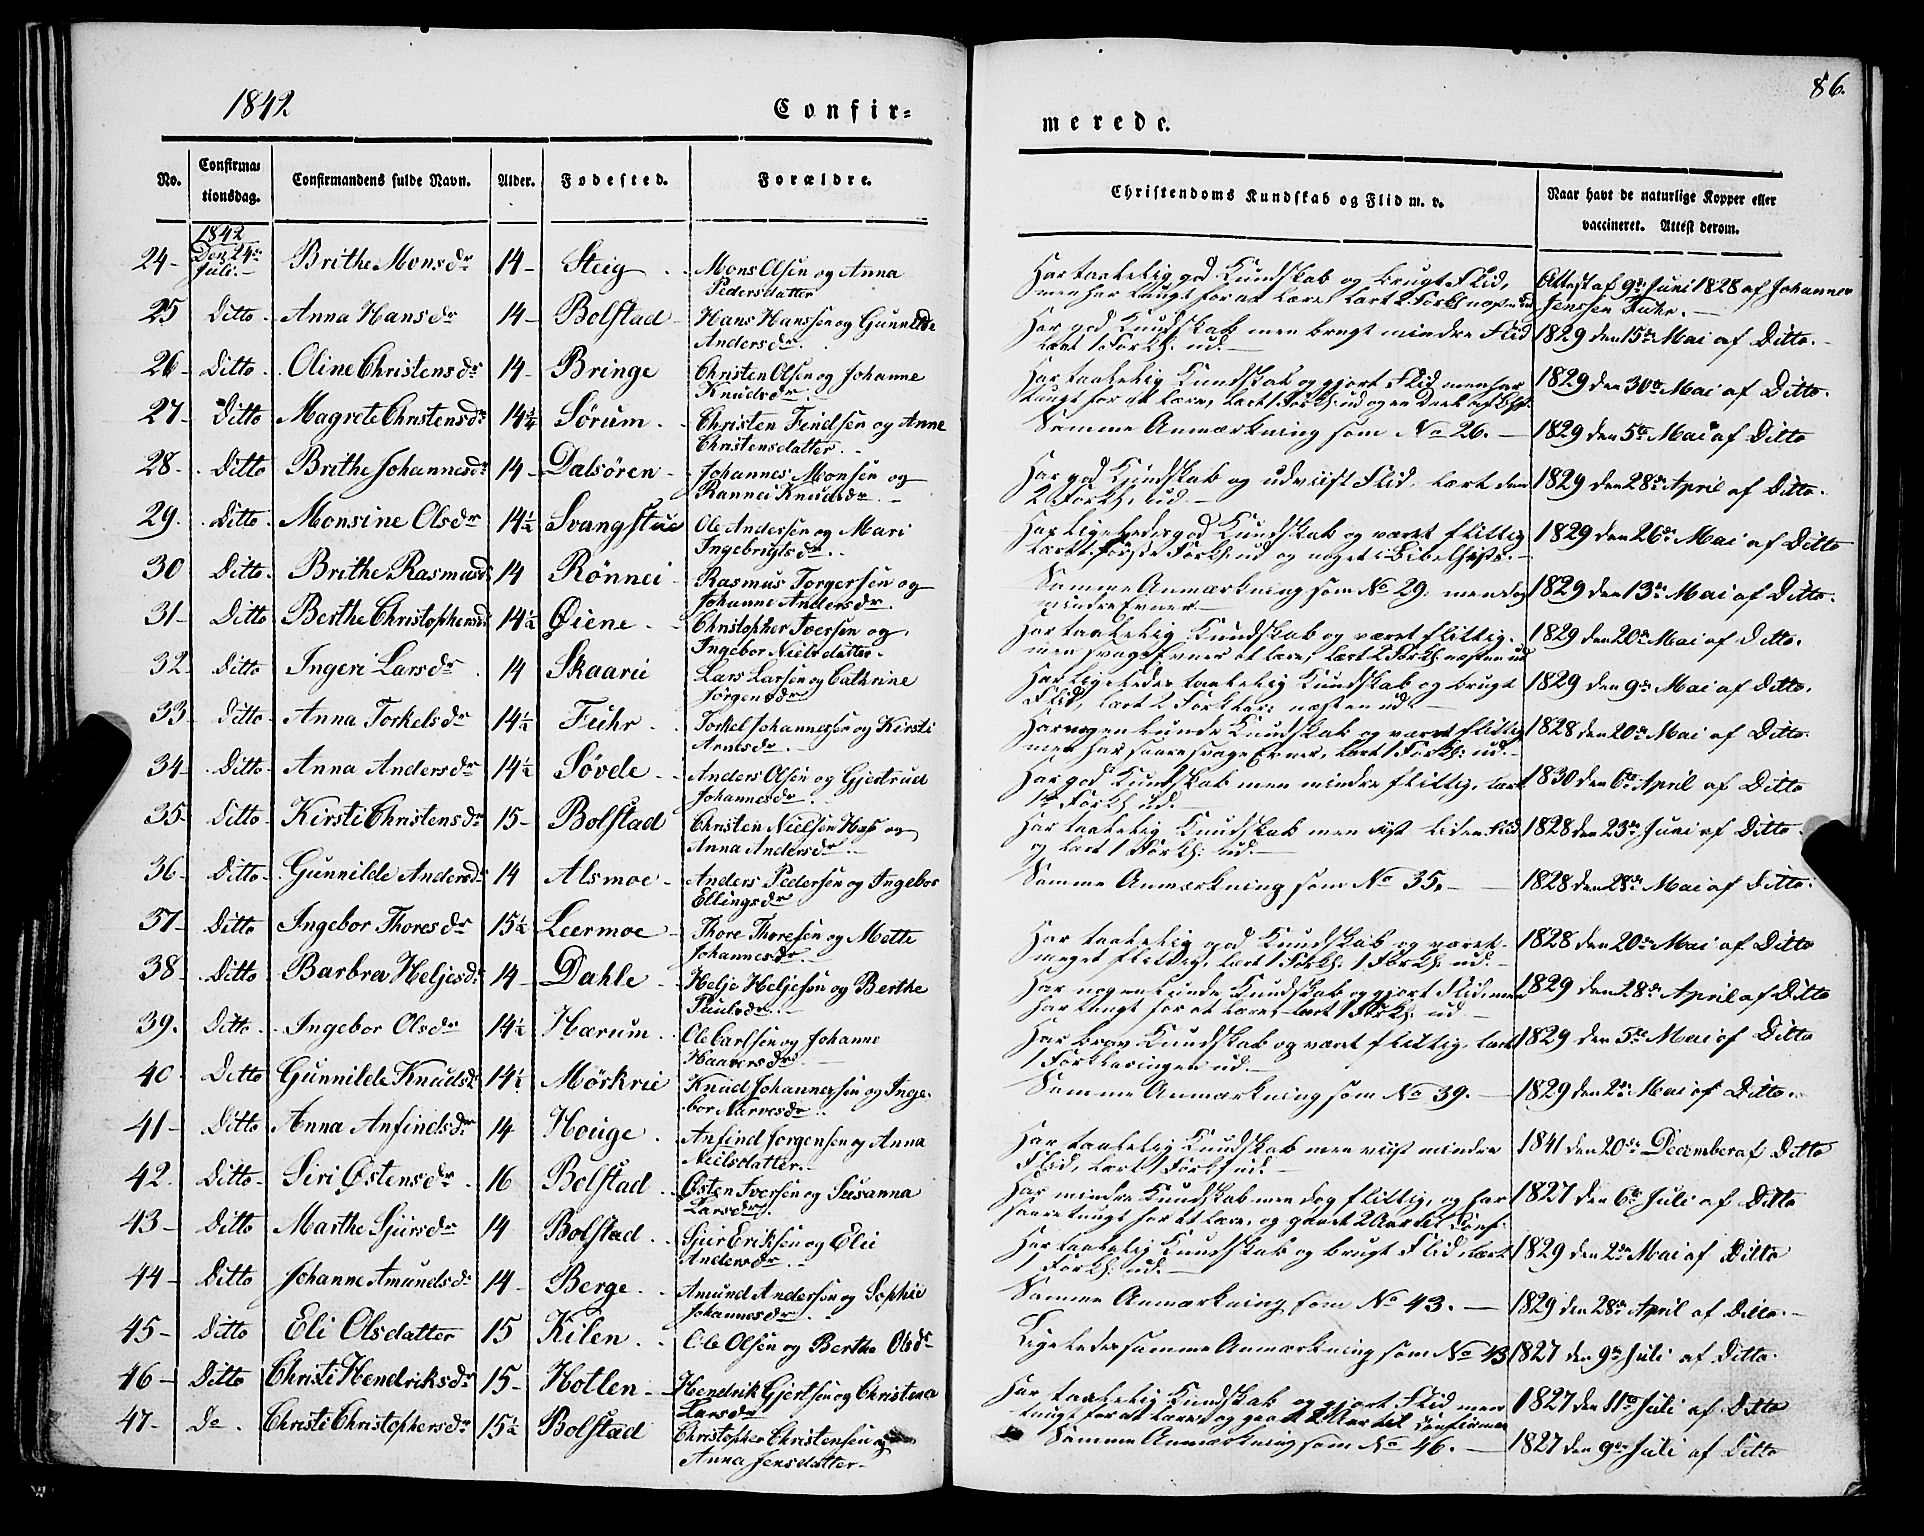 1842
Confir=
merede.
86.
No.
Confirma=
tionsdag.
Confirmandens fulde Navn.
Alder.
Fødested.
Forældre.
Christendoms Kundskab og Flid m. v.
Naar havt de naturlige Kopper eller
vaccineret. Attest derom.
1842
24 - Den 24de Juli. - Brithe Monsdr 14 - Steig Mons Olsen og Anna
Pedersdatter
Har taalelig god Kundskab og brugt Flid, Attest af 9de Juni 1828 af Johannes
Jenssen Fuhr. -
25 Ditto - Anna Hansdr 14 - Bolstad Hans Hanssen og Gunnilde
Andersdr
Har god Kundskab men brugt mindre Flid 1829 den 15de Mai af Ditto. -
lært 1 Forkl. ud. -
26 - Ditto - Oline Christensdr 14 - Bringe Christen Olsen og Johanne
Knudsdr
Har taalelig Kundskab og gjort Flid men har 1829 den 30te Mai af Ditto.
27 - Ditto Magrete Christensdr 14¼ Sörum Christen Findsen og Anne
Christensdatter. -
Samme Anmærkning som No 26. - 1829 den 5te Mai af Ditto
28 - Ditto Brithe Johannesdr 14 - Dalsören Johannes Monsen og
Rannei Knudsdr
Har god Kundskab og udviist Flid, lært den 1829 den 28de April af Ditto.
2 Forkl. ud. -
29. Ditto Monsine Olsdr 14½ Svangstue Ole Andersen og Mari
Ingebrigtsdr
Har ligeledes god Kundskab og været flittig 1829 den 26de Mai af Ditto
30 Ditto Brithe Rasmusd 14 Rönnei Rasmus Torgersen og
Johanne Andersdr
Samme Anmærkning som No 29. men dog 1829 den 13de Mai af Ditto.
mindre Evner -
31 - Ditto Berthe Christophersd 14½ Øiene Christopher Iversen og
Ingebor Nielsdatter.
Har taalelig Kundskab og været flittig. 1829 den 20de Mai af Ditto.
men svage Evner at lære, lært 2 Forkl. næsten ud
32 - Ditto Ingeri Larsdr 14 Skaari Lars Larsen og Cathrine
Jörgensdr
Har ligeledes taalelig Kundskab og brugt 1829 den 9de Mai af Ditto.
33 Ditto Anna Torkelsdr 14½ Fuhr Torkel Johannessen og Kirsti
Arnesdr
Har nogenlunde Kundskab og været flittig 1828 den 20de Mai af Ditto.
men har saare svage Evner, lært 1 Forkl. ud. -
34 - Ditto - Anna Andersdr 14½ Sövde Anders Olsen og Gjertrud
Johannesdr
Har god Kundskab men mindre flittig, lært 1830 den 6te April af Ditto
1 Forkl. ud. -
35 - Ditto - Kirsti Christensdr 15 - Bolstad Christen Nielsen Hæs og
Anna Andersdr
Har taalelig Kundskab men viist liden Flid 1828 den 23de Juni af Ditto.
og lært 1 Forkl. ud. -
36 - Ditto - Gunnilde Andersdr 14 Alsmoe Anders Pedersen og Ingebor
Ellingsdr
Samme Anmærkning som No 35. - 1828 den 28de Mai af Ditto.
37 - Ditto Ingebor Thoresdr 15½ Leermoe Thore Thoresen og Mette
Johannesdr
Har taalelig god Kundskab og været 1828 den 20de Mai af Ditto
38 - Ditto Barbra Heljesdr 14 - Dahle Helje Heljesen og Berthe
Paulsdr
Har nogenlunde Kundskab og gjort Flid, men 1829 den 28de April af Ditto
har tungt for at lære, lært 1 Forkl. ud -
39. Ditto - Ingebor Olsdr 14½ Hærum Ole Carlsen og Johanne
Haaversdr
Har brav Kundskab og været flittig, lært 1829 den 5te Mai af Ditto
1 Forklaringen ud. -
40 - Ditto Gunnilde Knudsdr 14½ Mörkrie Knud Johannessen og Inge-
bor Narvesdr
Samme Anmærkning som No 39. - 1829 den 2den Mai af Ditto.
41 - Ditto Anna Anfindsdr 14 Houge Anfind Jorgensen og Anna
Nielsdatter. -
Har taalelig Kundskab men viist mindre 1841 den 20de December af Ditto
Flid, lært 1 Forkl. ud -
42. Ditto - Siri Østensdr 16 Bolstad Østen Iversen og Susanna
Larsdr
Har mindre Kundskab men dog flittig, og har 1827 den 6te Juli af Ditto
43 - Ditto Marthe Sjursdr 14 Bolstad Sjur Eriksen og Elie
Andersdr
Har taalelig Kundskab og brugt Flid, lært 1829 den 2den Mai af Ditto
1 Forkl. ud. -
44 - Ditto Johanne Amundsdr 14 - Berge Amund Andersen og Sophie
Johannesdr
Samme Anmærkning som No 43. - 1829 den 28de April af Ditto. -
45 - Ditto Eli Olsdatter 15 Kilen Ole Olsen og Berthe Olsdr
Ligeledes samme Anmærkning som No 43 1827 den 9de Juli af Ditto.
46 - Ditto Christi Hendriksdr 15 - Hotlen Hendrik Gjertsen og Christina
Larsdr
Har taalelig Kundskab og gjort Flid men 1827 den 11te Juli af Ditto
47 - Do Christi Christophersdr 15½ Bolstad Christopher Christensen og
Anna Jensdatter -
Samme Anmærkning som No 46. - 1827 den 9de Juli af Ditto